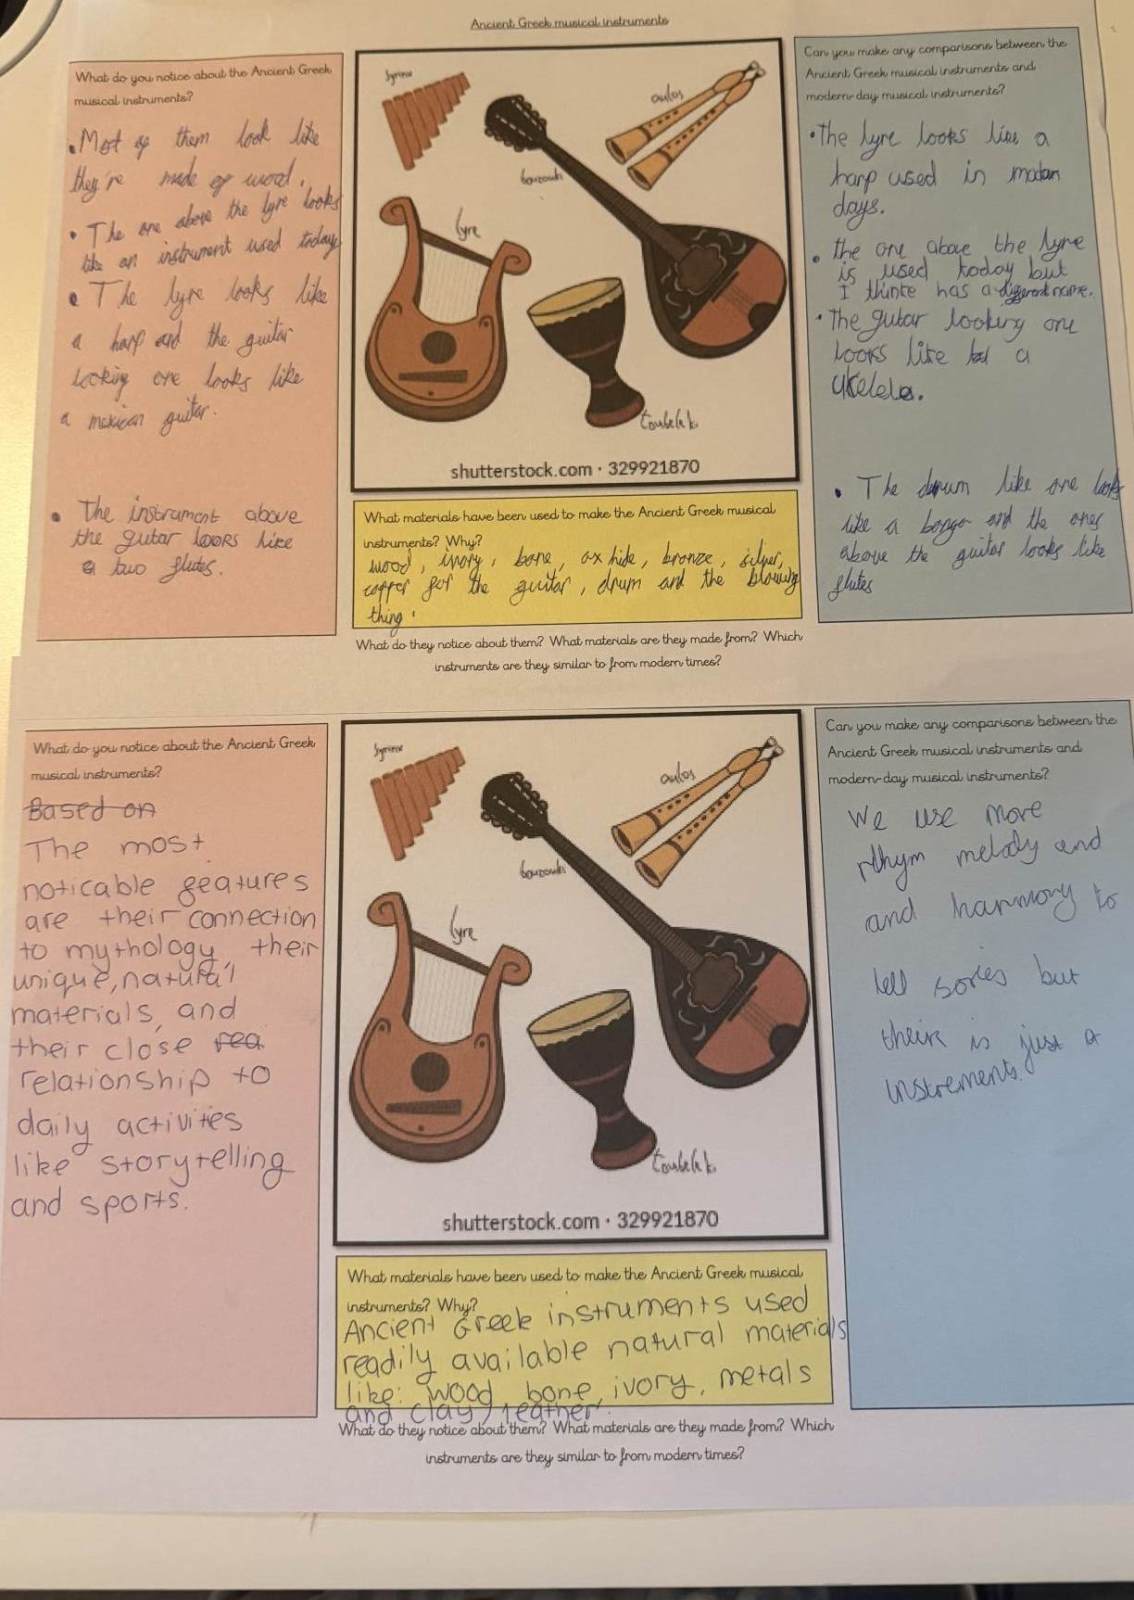 Ancient Greek musical instruments
What do you notice about the Ancient Greek
musical instruments?
• Most of them look like
they're made of wood.
• The one above the lyre looks
like an instrument used today
• The lyre looks like
a harp and the guitar
looking one looks like
a mexican guitar.
• The instrument above
the guitar looks like
a two flutes.
Syrinx
aulos
bouzouki
lyre
toubeleki
shutterstock.com · 329921870
What materials have been used to make the Ancient Greek musical
instruments? Why?
wood, ivory, bone, ox hide, bronze, silver,
copper for the guitar, drum and the blowing
thing.
Can you make any comparisons between the
Ancient Greek musical instruments and
modern-day musical instruments?
• The lyre looks like a
harp used in modan
days.
• the one above the lyre
is used today but
I thinke has a different name.
• The gutar looking one
looks like a
ukelele.
• The drum like one looks
like a bongo and the ones
above the guitar looks like
flutes
What do they notice about them? What materials are they made from? Which
instruments are they similar to from modern times?
What do you notice about the Ancient Greek
musical instruments?
Based on
The most
noticable features
are their connection
to mythology, their
unique, natural
materials, and
their close rea
relationship to
daily activities
like storytelling
and sports.
Syrinx
aulos
bouzouki
lyre
toubeleki
shutterstock.com · 329921870
What materials have been used to make the Ancient Greek musical
instruments? Why?
Ancient Greek instruments used
readily available natural materials
like: wood, bone, ivory, metals
and clay, leather.
Can you make any comparisons between the
Ancient Greek musical instruments and
modern-day musical instruments?
We use more
rthym melody and
and harmony to
tell sories but
theirs is just a
instrements.
What do they notice about them? What materials are they made from? Which
instruments are they similar to from modern times?